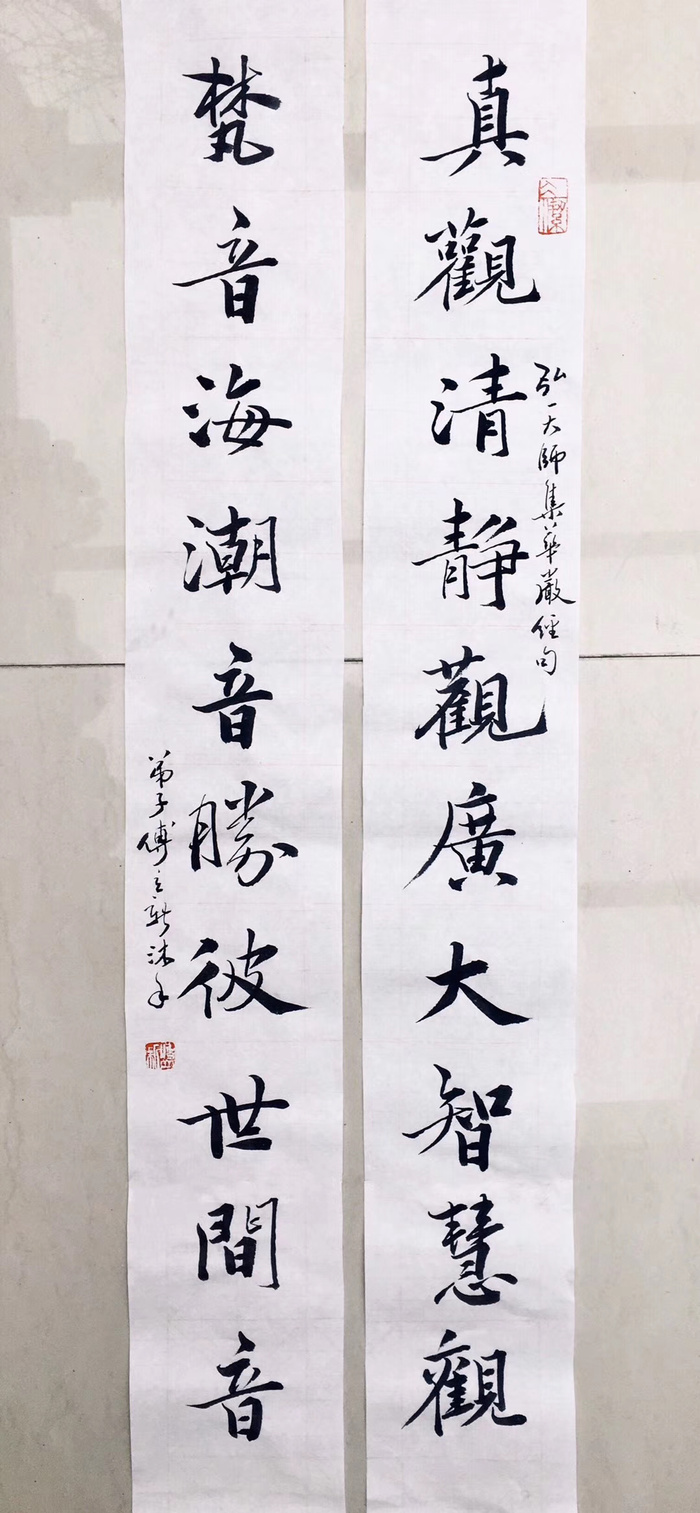 真觀清静觀廣大智慧觀
弘一大師集華嚴經句
梵音海潮音勝彼世間音
弟子傅立新沐手